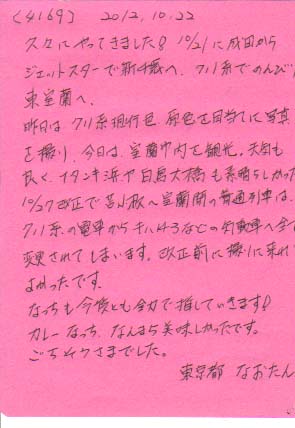 (4169) 2012.10.22
久々にやってきました。10/21に成田から
ジェットスターで新千歳へ、クハ系でのんび
東室蘭へ。
昨日は、クハ系現行色、原色を目当てに写真
を撮り、今日は、室蘭市内を観光。天気も
良く、イタンキ浜や白鳥大橋も素晴らしかった
10/27改正で苫小牧〜室蘭間の普通列車は、
クハ系の電車からキハ143などの気動車へ全て
変更されてしまいます。改正前に撮りに来れ
よかったです。
なっちも今後とも全力で推していきます!
カレーなっち、なんまら美味しかったです。
ごちそうさまでした。
東京都 なおたん